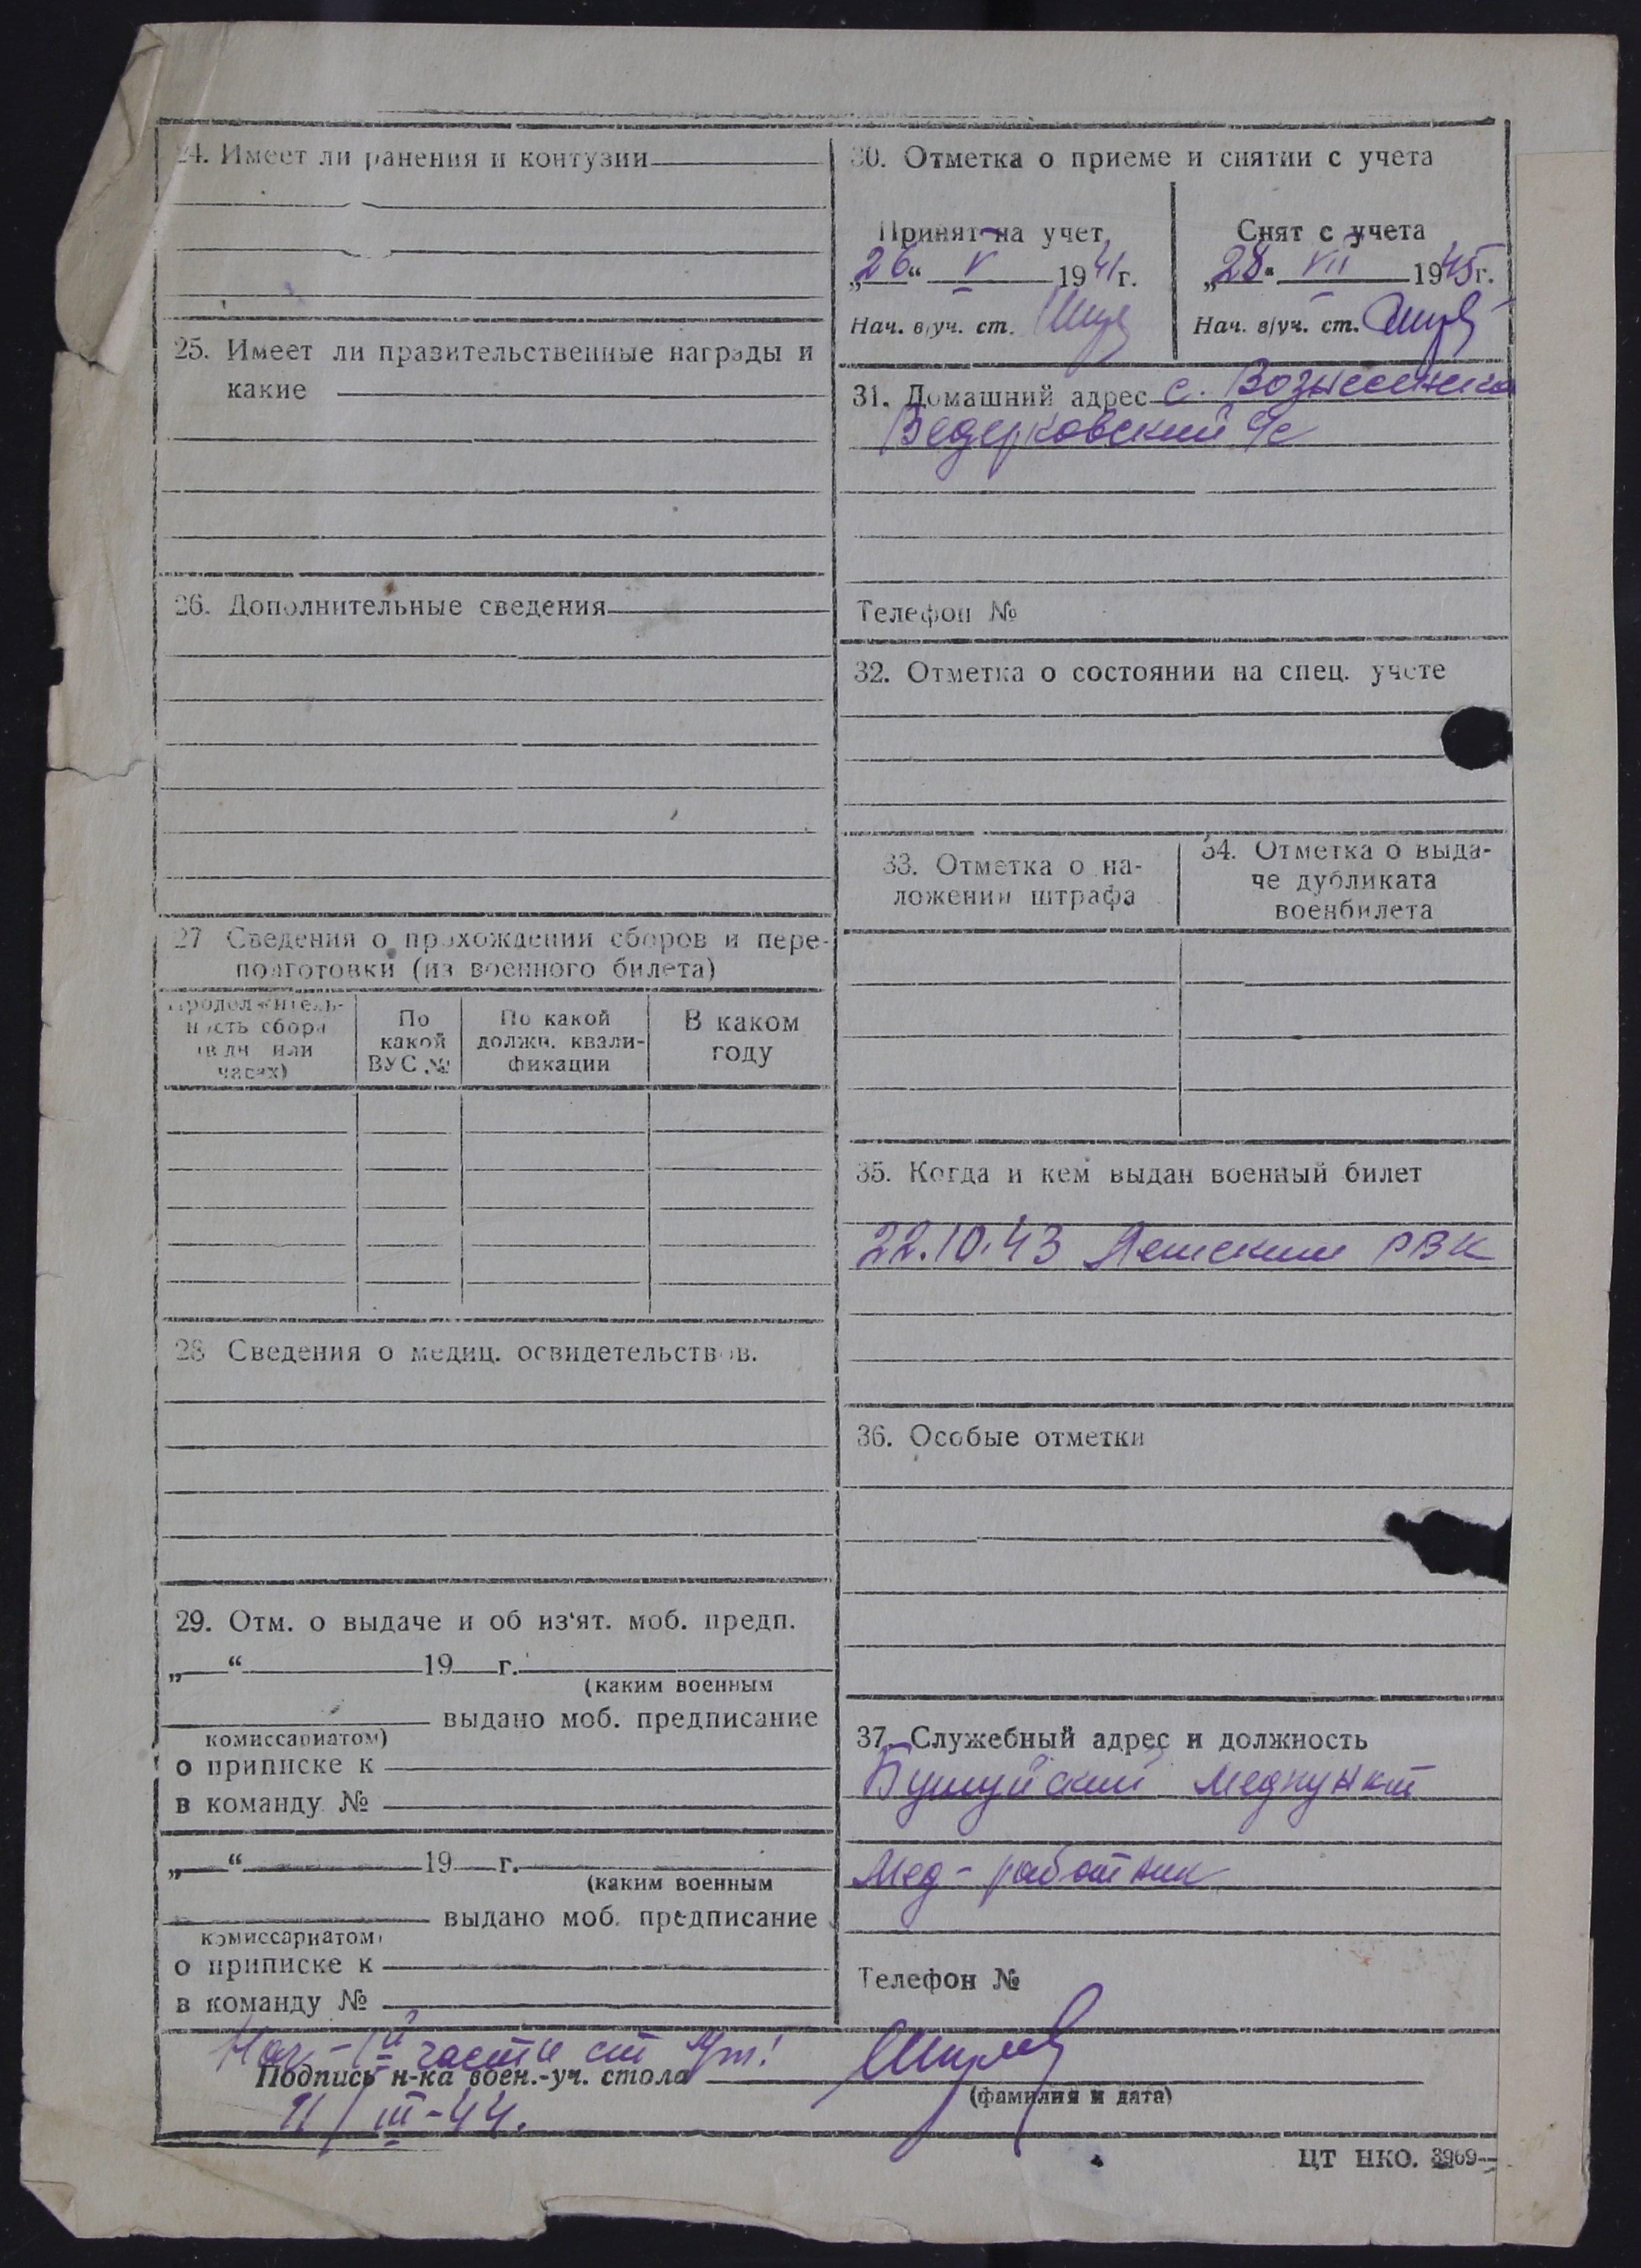 24. Имеет ли ранения и контузии
25. Имеет ли правительственные награды и
какие
26. Дополнительные сведения
27 Сведения о прохождении сборов и пере-
подготовки (из военного билета)
Продолжитель-
ность сбора
(в дн или
часах)
По
какой
ВУС №
По какой
должн. квали-
фикации
В каком
году
28 Сведения о медиц. освидетельствов.
29. Отм. о выдаче и об из'ят. моб. предп.
„ “ 19 г.
(каким военным
выдано моб. предписание
комиссариатом)
о приписке к
в команду №
„ “ 19 г.
(каким военным
выдано моб. предписание
комиссариатом)
о приписке к
в команду №
30. Отметка о приеме и снятии с учета
Принят на учет
„26“ V 1941г.
Нач. в/уч. ст.
Снят с учета
„28“ VII 1945г.
Нач. в/уч. ст.
31. Домашний адрес с.
с/с
Телефон №
32. Отметка о состоянии на спец. учете
33. Отметка о на-
ложении штрафа
34. Отметка о выда-
че дубликата
военбилета
35. Когда и кем выдан военный билет
22.10.43 РВК
36. Особые отметки
37. Служебный адрес и должность
Бушуйский медпункт
Мед-работник
Телефон №
Нач. части ст
Подпись н-ка воен.-уч. стола
(фамилия и дата)
11/III-44.
ЦТ НКО. 3969